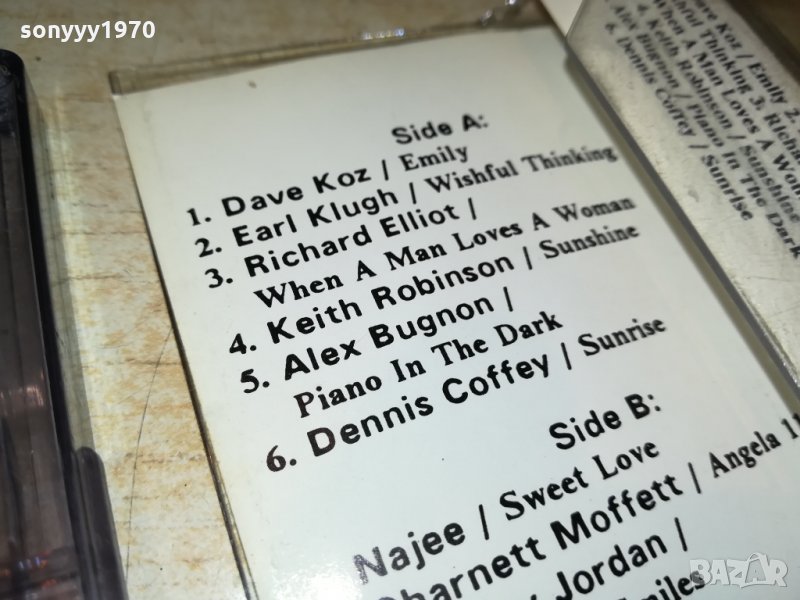 sonyyy1970
Side A:
1. Dave Koz / Emily
2. Earl Klugh / Wishful Thinking
3. Richard Elliot /
When A Man Loves A Woman
4. Keith Robinson / Sunshine
5. Alex Bugnon /
Piano In The Dark
6. Dennis Coffey / Sunrise
Side B:
Najee / Sweet Love
Charnett Moffett / Angela 11
/ Jordan /
Smiles
Dave Koz / Emily 2.
Thinking 3. Richard
When A Man Loves A
4. Keith Robinson / Sunshine
Alex Bugnon / Piano In The Dark
6. Dennis Coffey / Sunrise
BAZAR